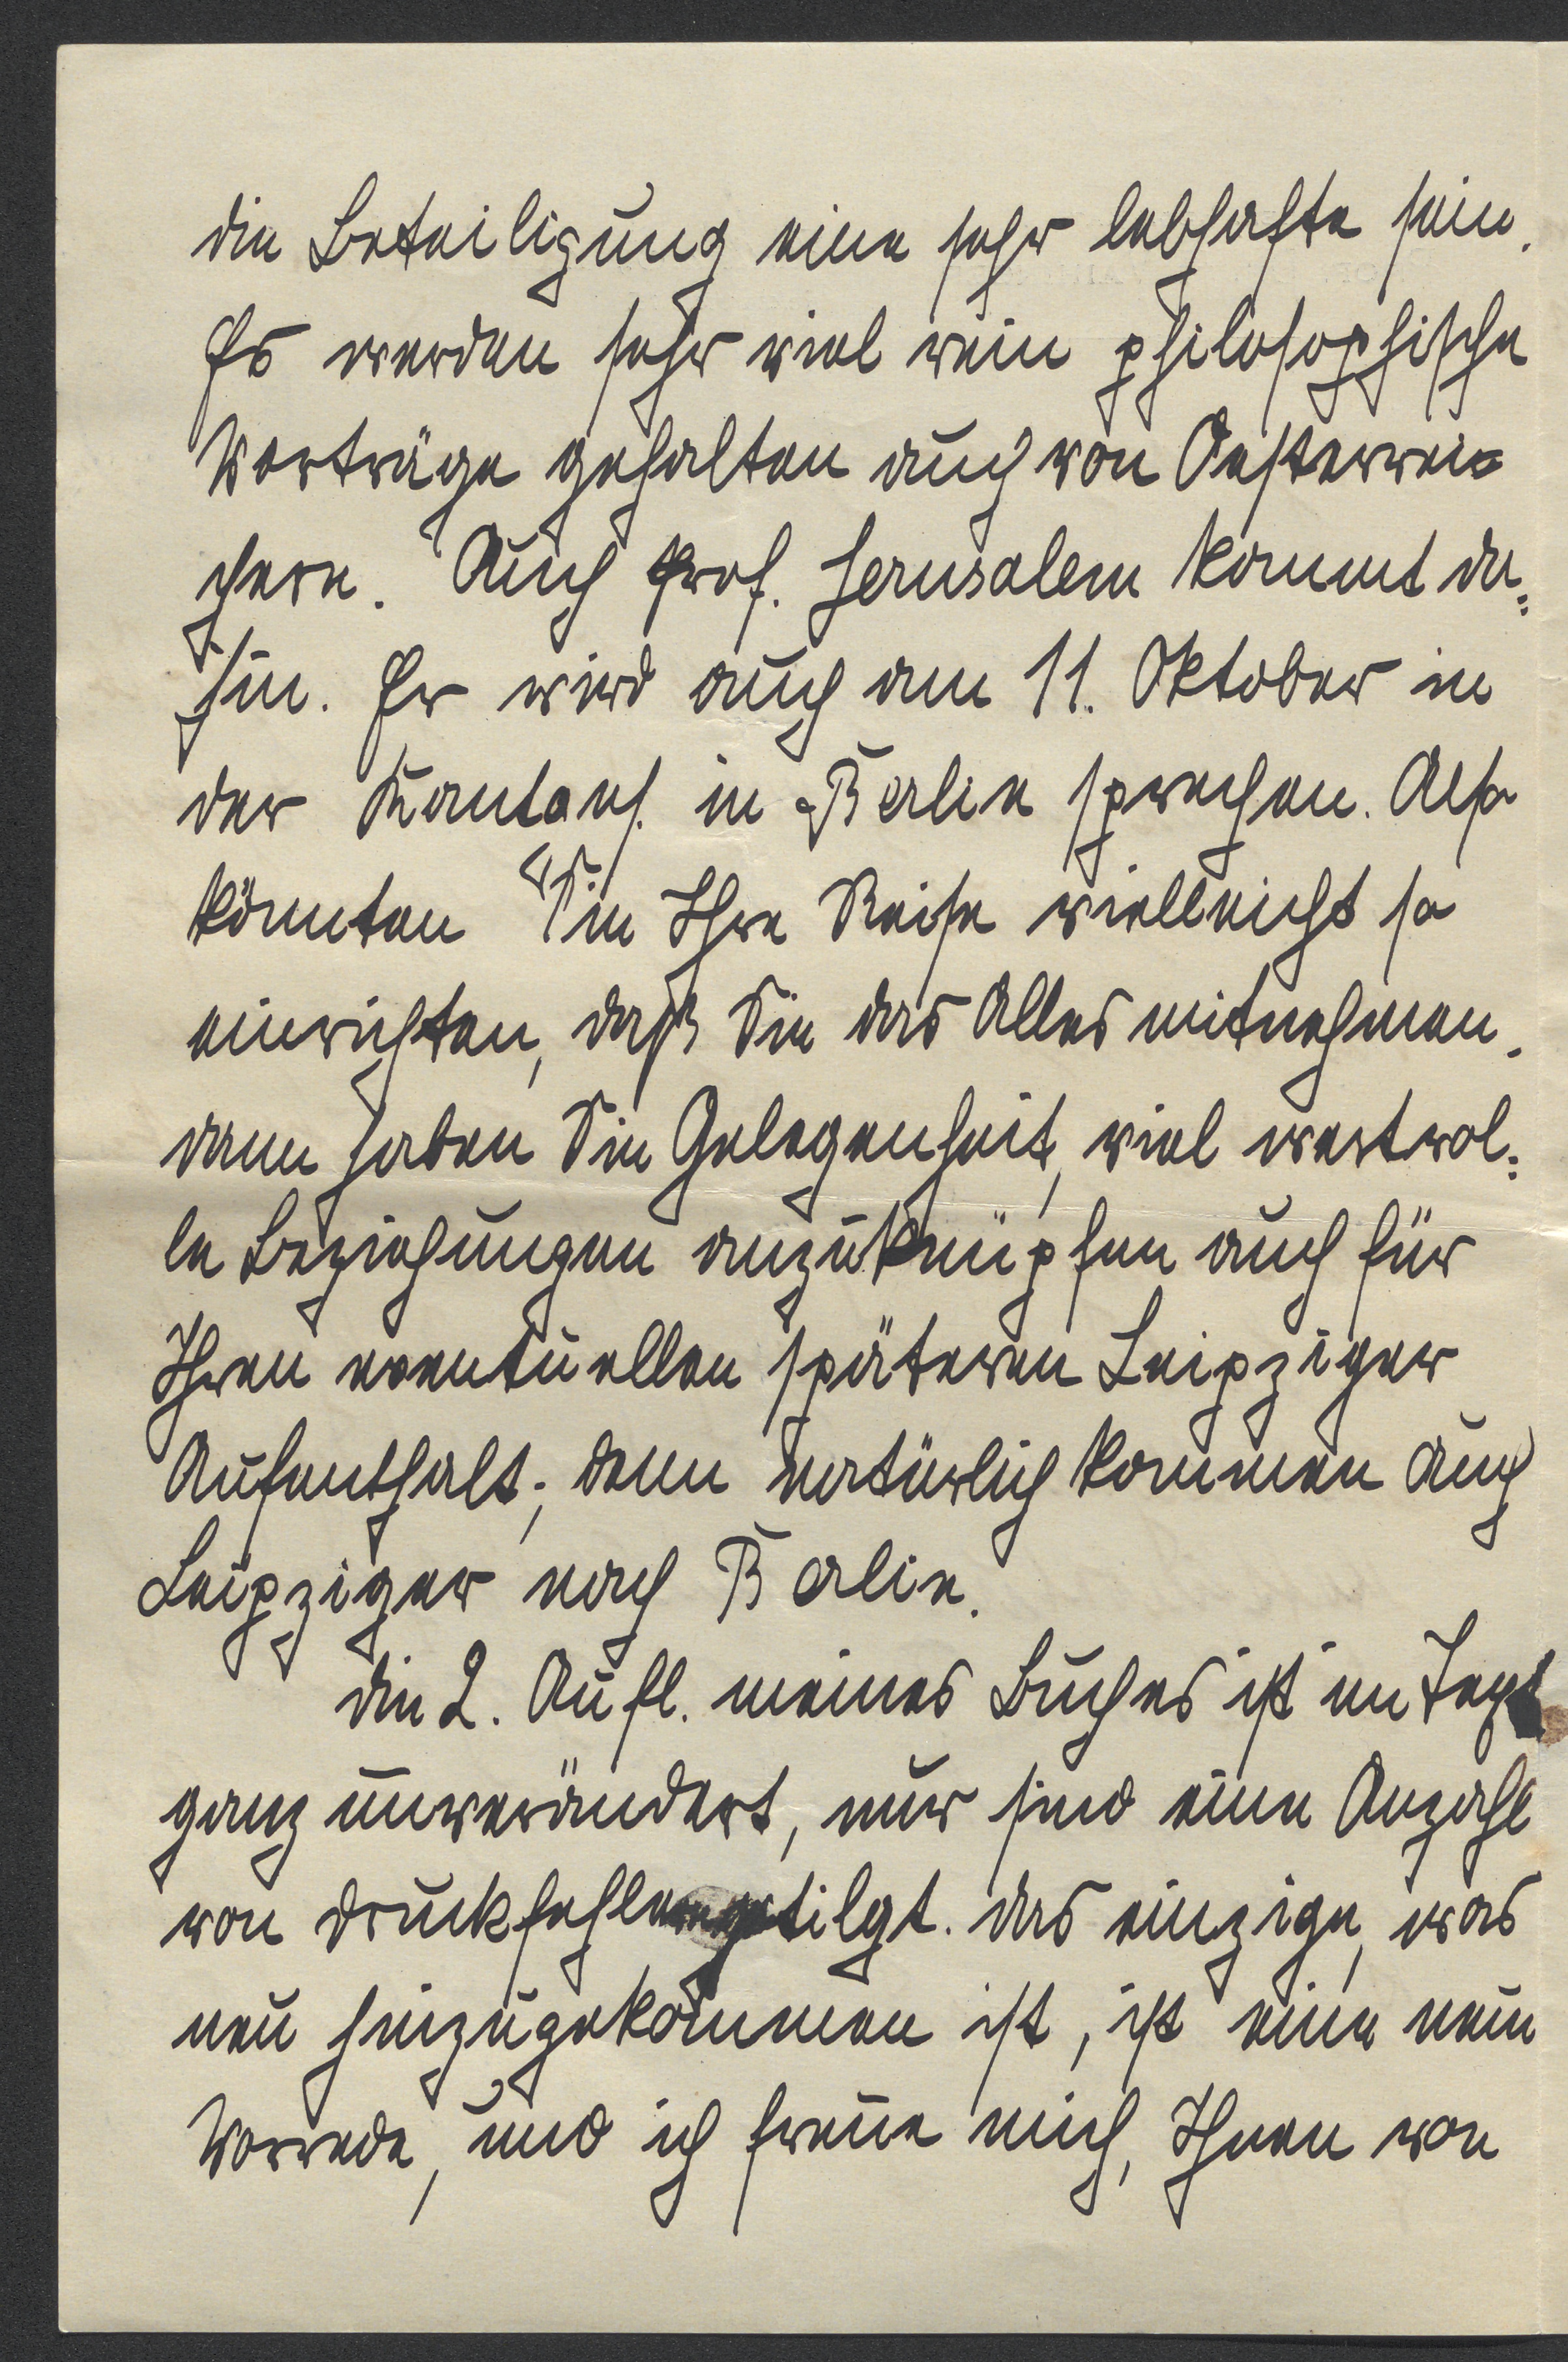 die Beteiligung eine sehr lebhafte sein.
Es werden sehr viel rein philosophische
Vorträge gehalten auch von Oesterrei=
chern. Auch Prof. Jerusalem kommt da=
hin. Er wird auch am 11. Oktober in
der Kantges. in Berlin sprechen. Also
könnten Sie Ihre Reise vielleicht so
einrichten, daß Sie das Alles mitnehmen.
dann haben Sie Gelegenheit, viel wertvol=
le Beziehungen anzuknüpfen auch für
Ihren eventuellen späteren Leipziger
Aufenthalt; denn natürlich kommen auch
Leipziger nach Berlin.
die 2. Aufl. meines Buches ist im Text
ganz unverändert, nur sind eine Anzahl
von Druckfehlern getilgt. das einzige, was
neu hinzugekommen ist, ist eine neue
Vorrede, und ich freue mich, Ihnen von